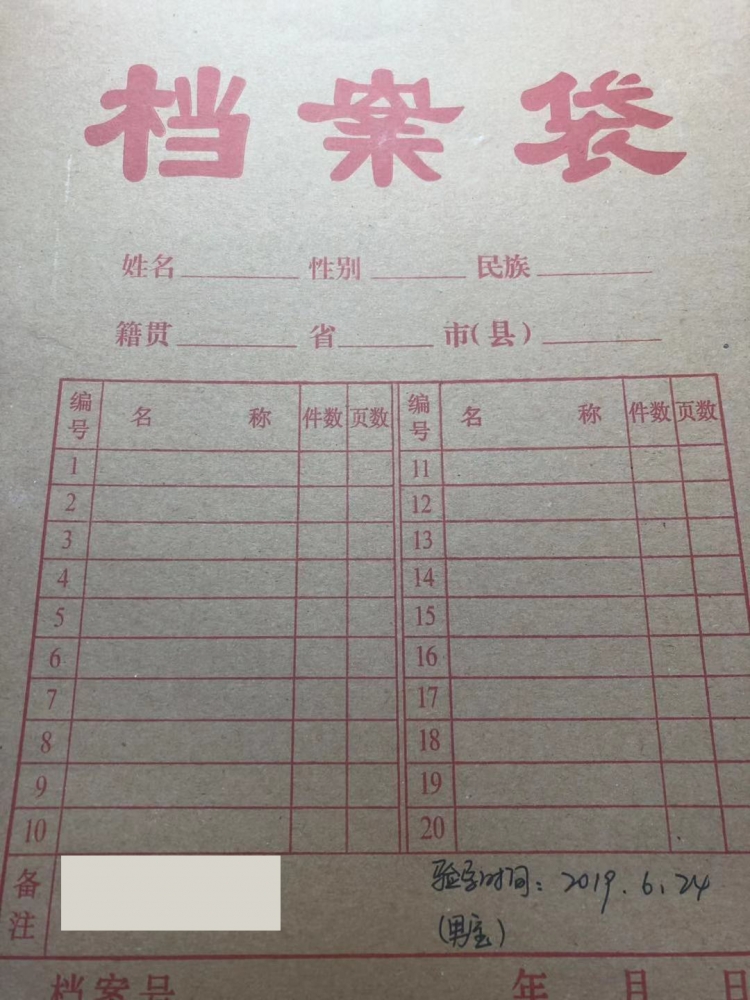 档案袋
姓名 性别 民族
籍贯 省 市(县)
编号 名称 件数 页数 编号 名称 件数 页数
1 11
2 12
3 13
4 14
5 15
6 16
7 17
8 18
9 19
10 20
备注 时间：2019.6.24
(男宝)
档案号 年 月 日